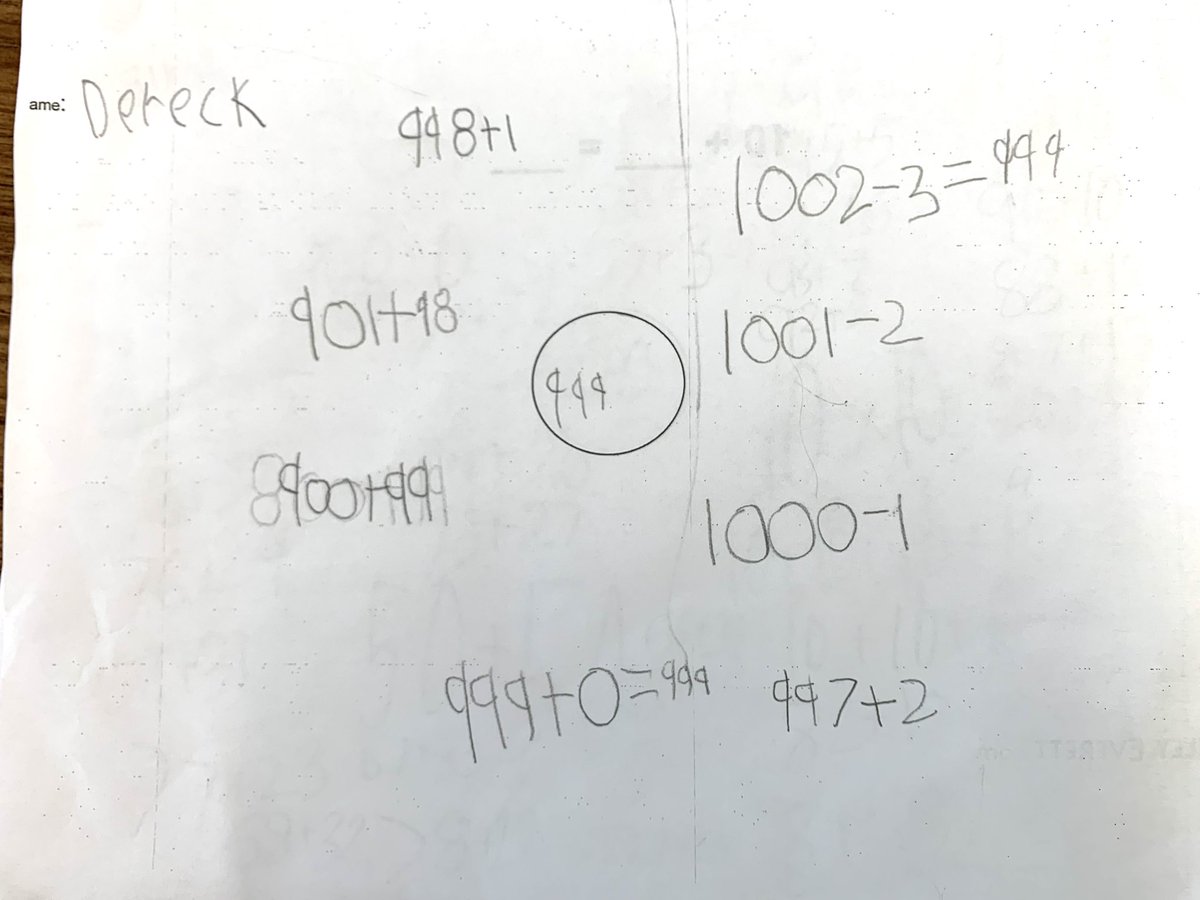 ame: Dereck
998+1
1002-3=999
901+98
1001-2
999
900+99
1000-1
999+0=999
997+2